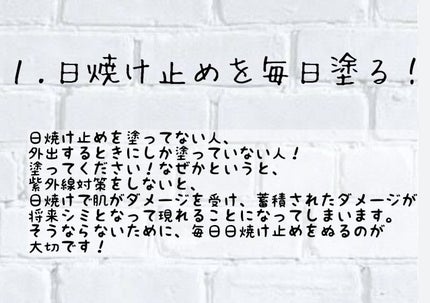 1.日焼け止めを毎日塗る！
日焼け止めを塗ってない人、
外出するときにしか塗っていない人！
塗ってください！なぜかというと、
紫外線対策をしないと、
日焼けで肌がダメージを受け、蓄積されたダメージが
将来シミとなって現れることになってしまいます。
そうならないために、毎日日焼け止めをぬるのが
大切です！